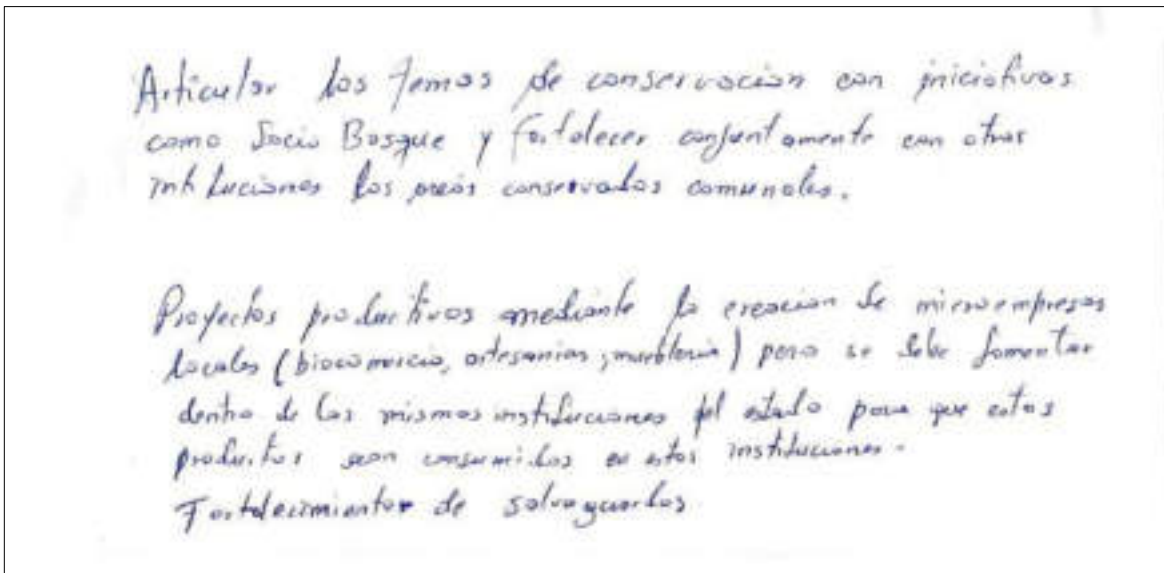 Articular los temas de conservacion con iniciativas
como Socio Bosque y fortalecer conjuntamente con otras
instituciones las areas conservadas comunales.
Proyectos productivos mediante la creacion de microempresas
locales (biocomercio, artesanias, muebleria) pero se debe fomentar
dentro de las mismas instituciones del estado para que estos
productos sean consumidos en estas instituciones.
Fortalecimiento de salvaguardas